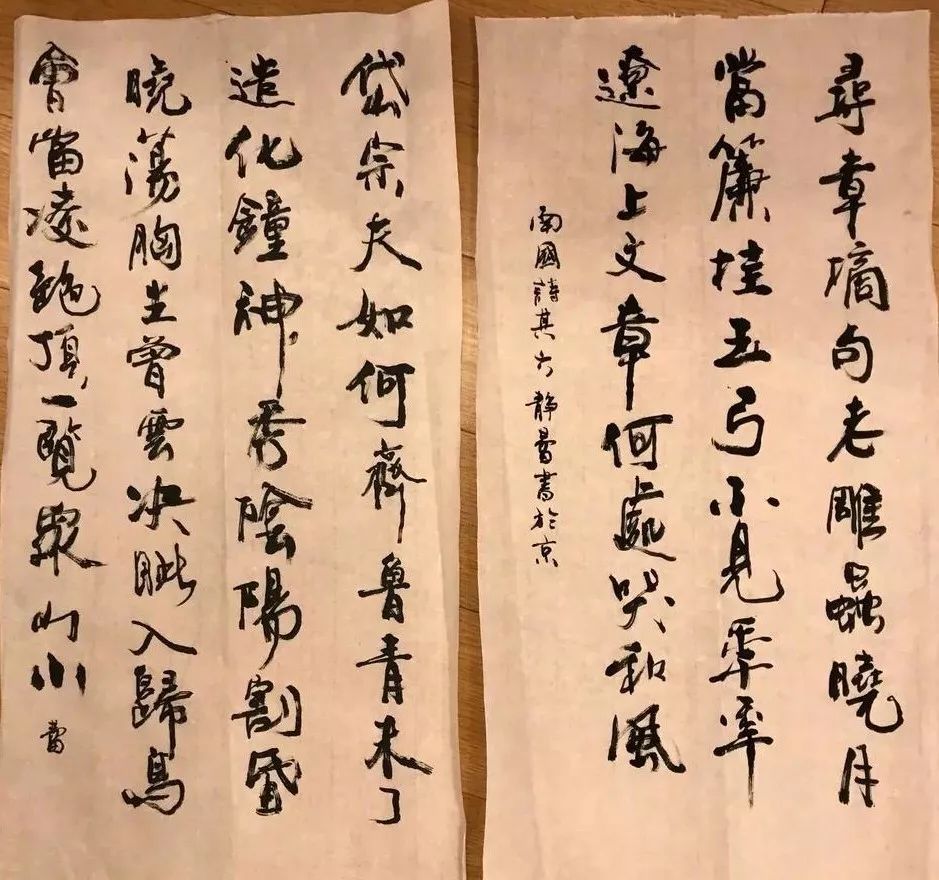 尋章摘句老雕蟲曉月
當簾挂玉弓不見年年
遼海上文章何處哭和風
南國詩其六 靜曼書於京
岱宗夫如何齊魯青未了
造化鐘神秀陰陽割昏
曉蕩胸生曾雲决眥入歸鳥
會當凌絕頂一覽眾山小